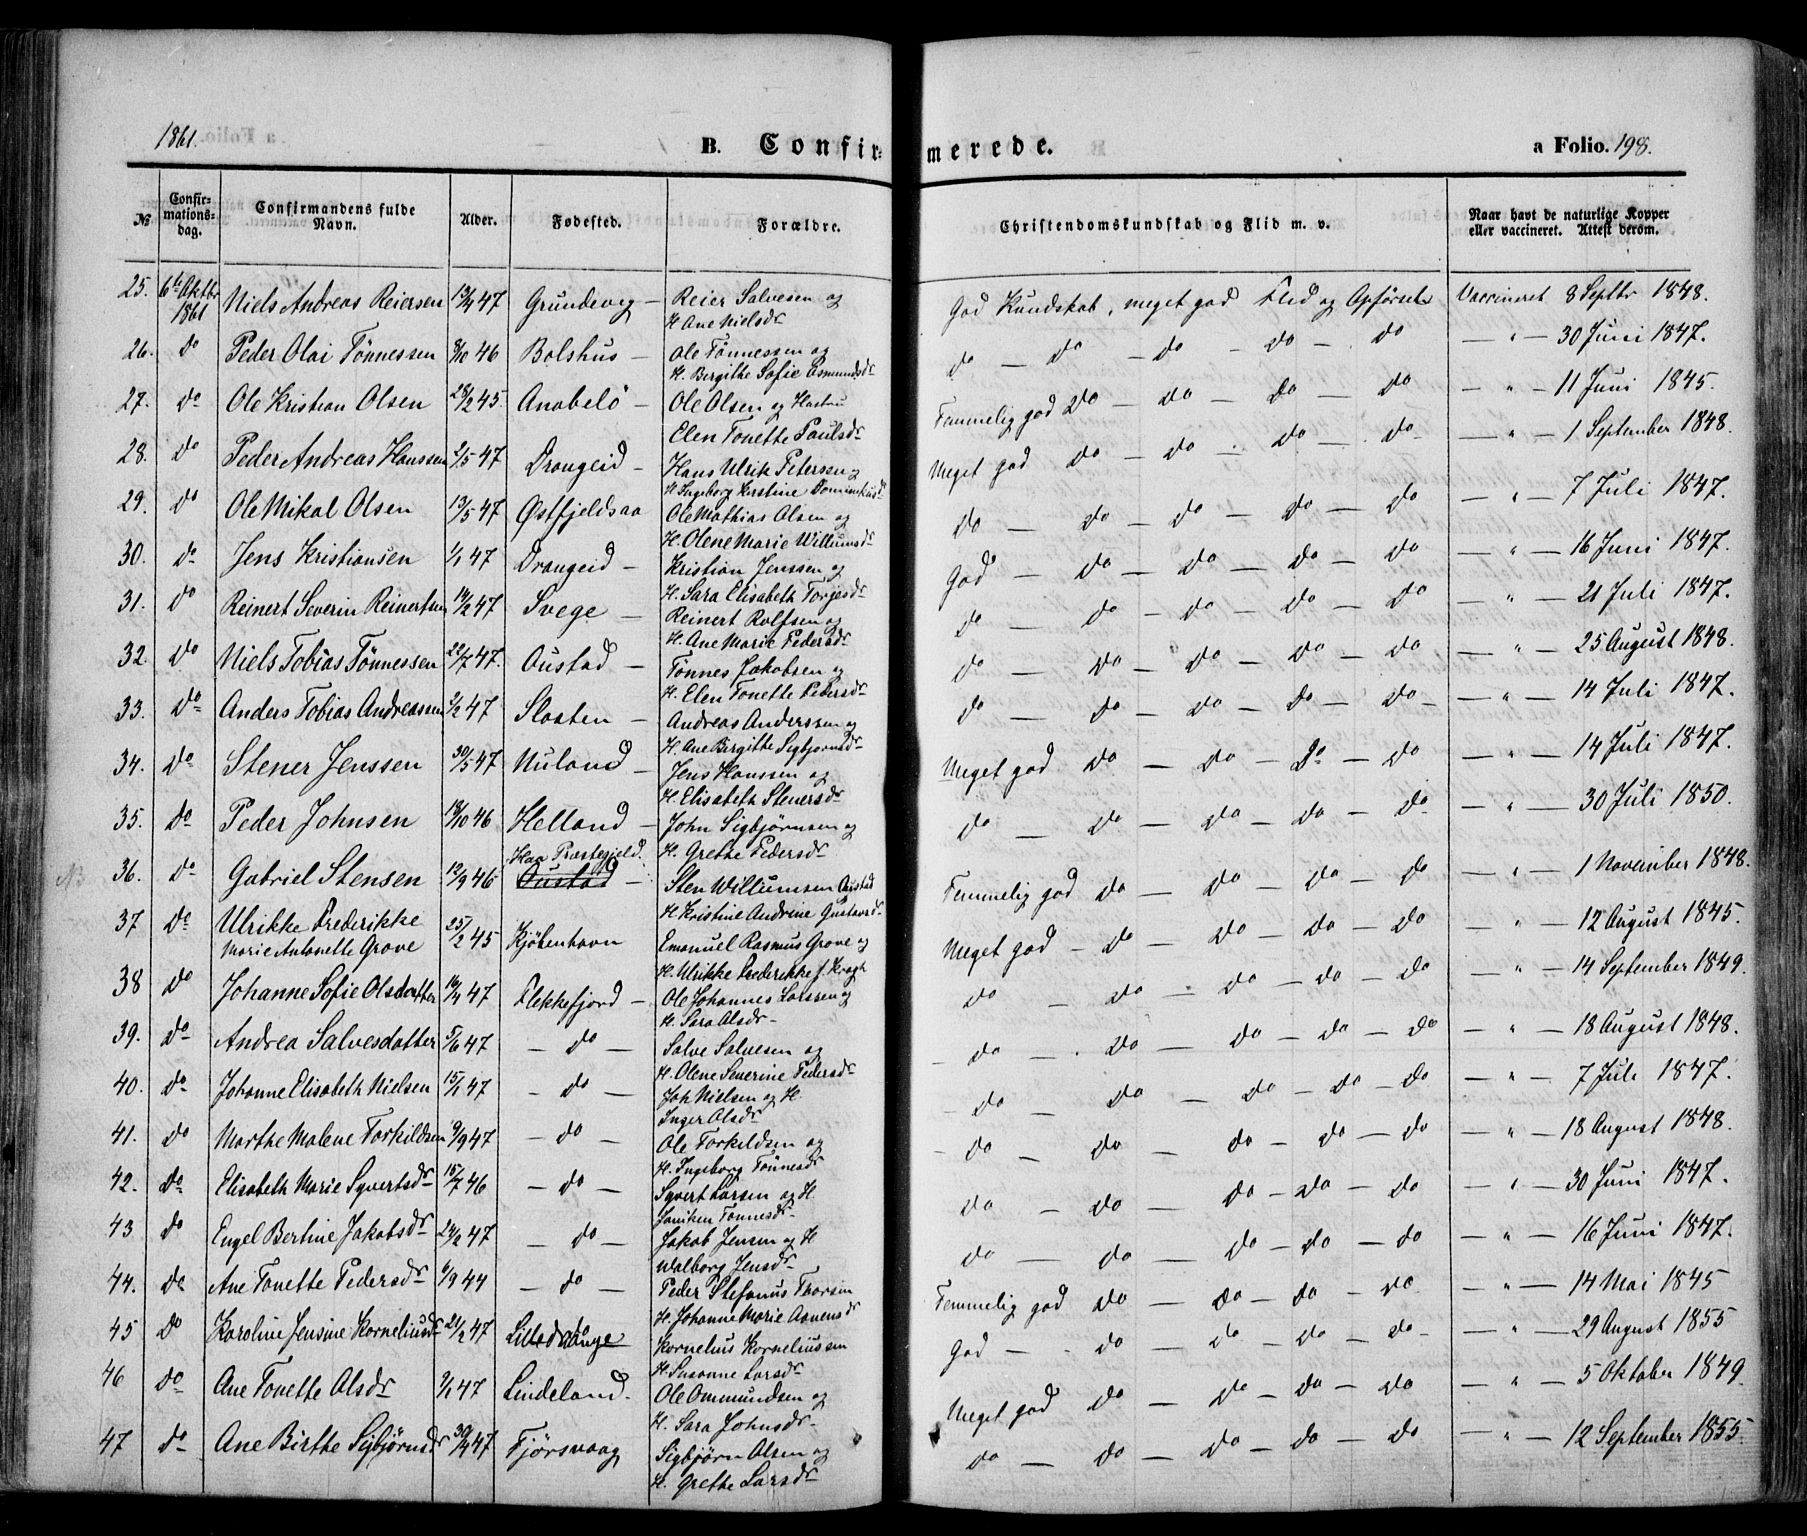 1861. B. Confirmerede. a Folio. 198.
№ Confirmationsdag. Confirmandens fulde Navn. Alder. Fødested. Forældre. Christendomskundskab og Flid m. v. Naar havt de naturlige Kopper eller vaccineret. Attest derom.
25. 6te Oktbr 1861 Niels Andreas Reiersen 47 Grundevig — Reier Salvesen og H. Ane Nielsdr God Kundskab, meget god Flid og Opførsel Vaccineret 8 Septbr 1848.
26. do Peder Olai Tønnessen 8/10 46 Bolshus — Ole Tønnessen og H. Birgithe Sofie Osmundsdr do — do — do — do — do — " — 30 Juni 1847.
27. do Ole Kristian Olsen 28/2 45. Anabelö — Ole Olsen og Hustru Elen Tonette Paulsdr Temmelig god do — do — do — do — " — 11 Juni 1845.
28. do Peder Andreas Hanssen 2/5 47 Drangeid — Hans Ulrik Peterssen og H. Ingeborg Kirstine Meget god do — do — do — do — " — 1 September 1848.
29. do Ole Mikal Olsen 13/5 47 Østfjeldsaa Ole Mathias Olsen og H. Olene Marie Willumsdr do — do — do — do — do — " — 7 Juli 1847.
30. do Jens Kristiansen 1/1 47 Drangeid — Kristian Jenssen og H. Sara Elisabeth Torjesdr God — do — do — do — do — " — 16 Juni 1847.
31. do Reinert Severin Reinertsen 14/2 47 Svege — Reinert Rolfsen og H. Ane Marie Pedersdr do — do — do — do — do — " — 21 Juli 1847.
32. do Niels Tobias Tønnessen 22/7 47. Oustad — Tønnes Jakobsen og H. Elen Tonette Pedersdr do — do — do — do — do — " — 25 August 1848.
33. do Anders Tobias Andreassen 2/2 47 Sloaten — Andreas Anderssen og H. Ane Birgithe Sigbjørnsdr do — do — do — do — do — " — 14 Juli 1847.
34. do Stener Jenssen 30/5 47 Nuland — Jens Hanssen og H. Elisabeth Stenersdr Meget god do — do — do — do — " — 14 Juli 1847.
35. do Peder Johnsen 18/10 46 Helland — John Sigbjørnsen og H. Grethe Pedersdr do — do — do — do — do — " — 30 Juli 1850.
36. do Gabriel Stensen 12/9 46 Haa Præstegjeld. Oustad — Sten Willumsen Oustad H. Kristine Andrine Gustavsdr Temmelig god do — do — do — do — " — 1 November 1848.
37 do Ulrikke Frederikke Marie Antonette Grove 25/2 45 Kjöbenhavn Emanuel Rasmus Grove og H. Ulrikke Frederikke f. Kragh Meget god — do — do — do — do " — 12 August 1845.
38 do Johanne Sofie Olsdatter 14/4 47 Flekkefjord — Ole Johannes Larssen og H. Sara Olsdr do — do — do — do — " — 14 September 1849.
39. do Andrea Salvesdatter 5/6 47 — do — Salve Salvesen og H. Olene Severine Pedersdr do — do — do — do — do — " — 18 August 1848.
40. do Johanne Elisabeth Nielsen 15/1 47 do Joh Nielsen og H Inger Olsdr do — do — do — do — do — " — 7 Juli 1847.
41. do Marthe Malene Torkildsen 9/9 47 — do — Ole Torkildsen og H. Ingeborg Tönnesdr do — do do — do — do — " — 18 August 1848.
42. do Elisabeth Marie Syvertsdr 15/7 46 — do — Syvert Larsen og H Janiken Tonnesdr do — do do — do — do — " — 30 Juni 1847.
43 do Engel Bertine Jakobsdr 24/2 47 — do — Jakob Jensen og H Walborg Jensdr do — do — do — do — do — " — 16 Juni 1847.
44. do Ane Tonette Pedersdr 6/9 44 — do Peder Stefanus Thorsen H. Johanne Marie Temmelig god do — do — do — do — " — 14 Mai 1845
45 do Karoline Jensine Korneliusdr 21/2 47 Kornelius Korneliussen H. Susanne Larsdr God — do — do — do — do — " — 29 August 1855
46 do Ane Tonette Olsdr 9/1 47 Lindeland. Ole Ommundsen og H. Sara Johnsdr Meget god do — do — do — do — " — 5 Oktober 1849.
47 do Ane Birthe Sigbjørnsdr 47 Fjörsvaag Sigbjørn Olsen og H. Grethe Larsdr do — do — do — do — do — " — 12 September 1855.